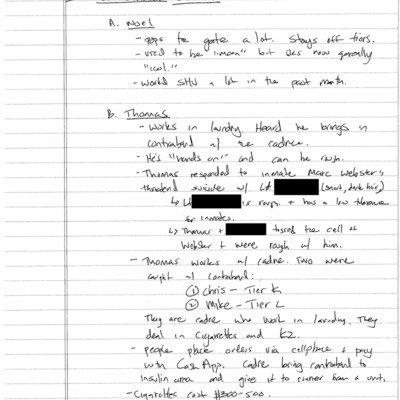 A. Noel
- pops the gate a lot. Stays off tiers.
- used to be "mean" but is now generally
"cool."
- worked SHU a lot in the past month.
B. Thomas
- works in laundry. Heard he brings in
contraband w/ the cadre.
- He's "hands on" and can be rough.
- Thomas responded to inmate Marc Webster's
threatened suicide w/ Lt. (short, dark hair)
↳ Lt. is rough + has a low tolerance
for inmates.
↳ Thomas + tossed the cell of
Webster + were rough w/ him.
- Thomas works w/ cadre. Two were
caught w/ contraband:
① Chris - Tier K
② Mike - Tier L
They are cadre who work in laundry. They
deal in cigarettes and K2.
- people place orders via cellphone + pay
with Cash App. Cadre bring contraband to
insulin area and give it to runner from a unit.
- Cigarettes cost $300-500.